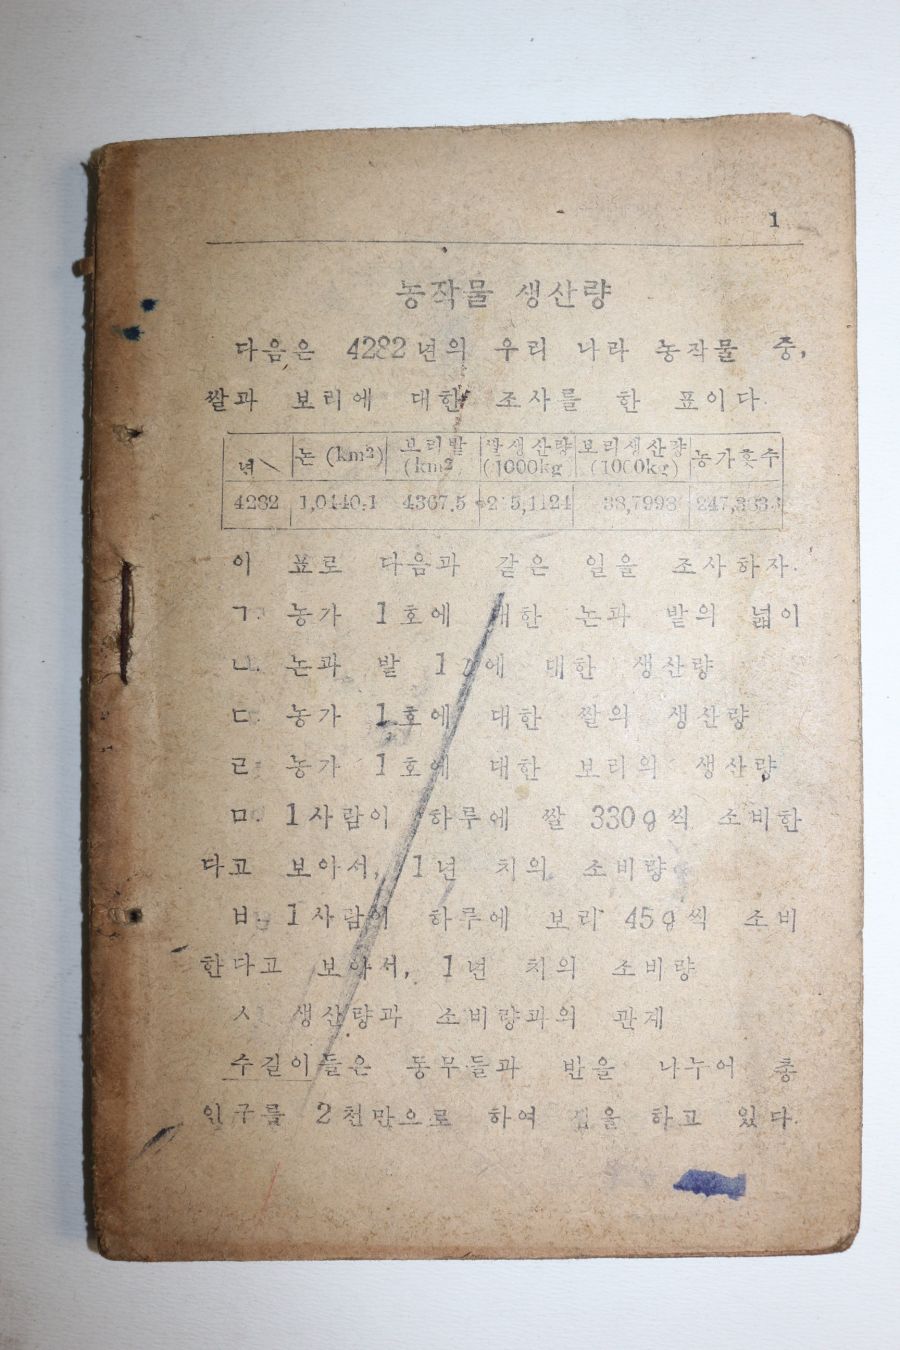 1
농작물 생산량
다음은 4282년의 우리 나라 농작물 중,
쌀과 보리에 대한 조사를 한 표이다.
년 논(km²) 보리밭(km²) 쌀생산량(1000kg) 보리생산량(1000kg) 농가홋수
4282 4367.5
이 표로 다음과 같은 일을 조사하자.
ㄱ. 농가 1호에 대한 논과 밭의 넓이
ㄴ. 논과 밭 에 대한 생산량
ㄷ. 농가 1호에 대한 쌀의 생산량
ㄹ. 농가 1호에 대한 보리의 생산량
ㅁ. 1사람이 하루에 쌀 330g씩 소비한
다고 보아서, 1년 치의 소비량
ㅂ. 1사람이 하루에 보리 45g씩 소비
한다고 보아서, 1년 치의 소비량
ㅅ 생산량과 소비량과의 관계
수길이들은 동무들과 반을 나누어 총
인구를 2천만으로 하여 을 하고 있다.